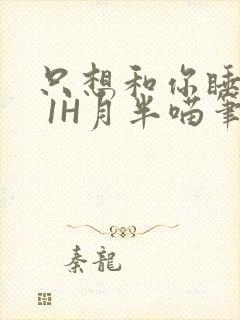 只想和你睡
1H月半喵笔
秦龙